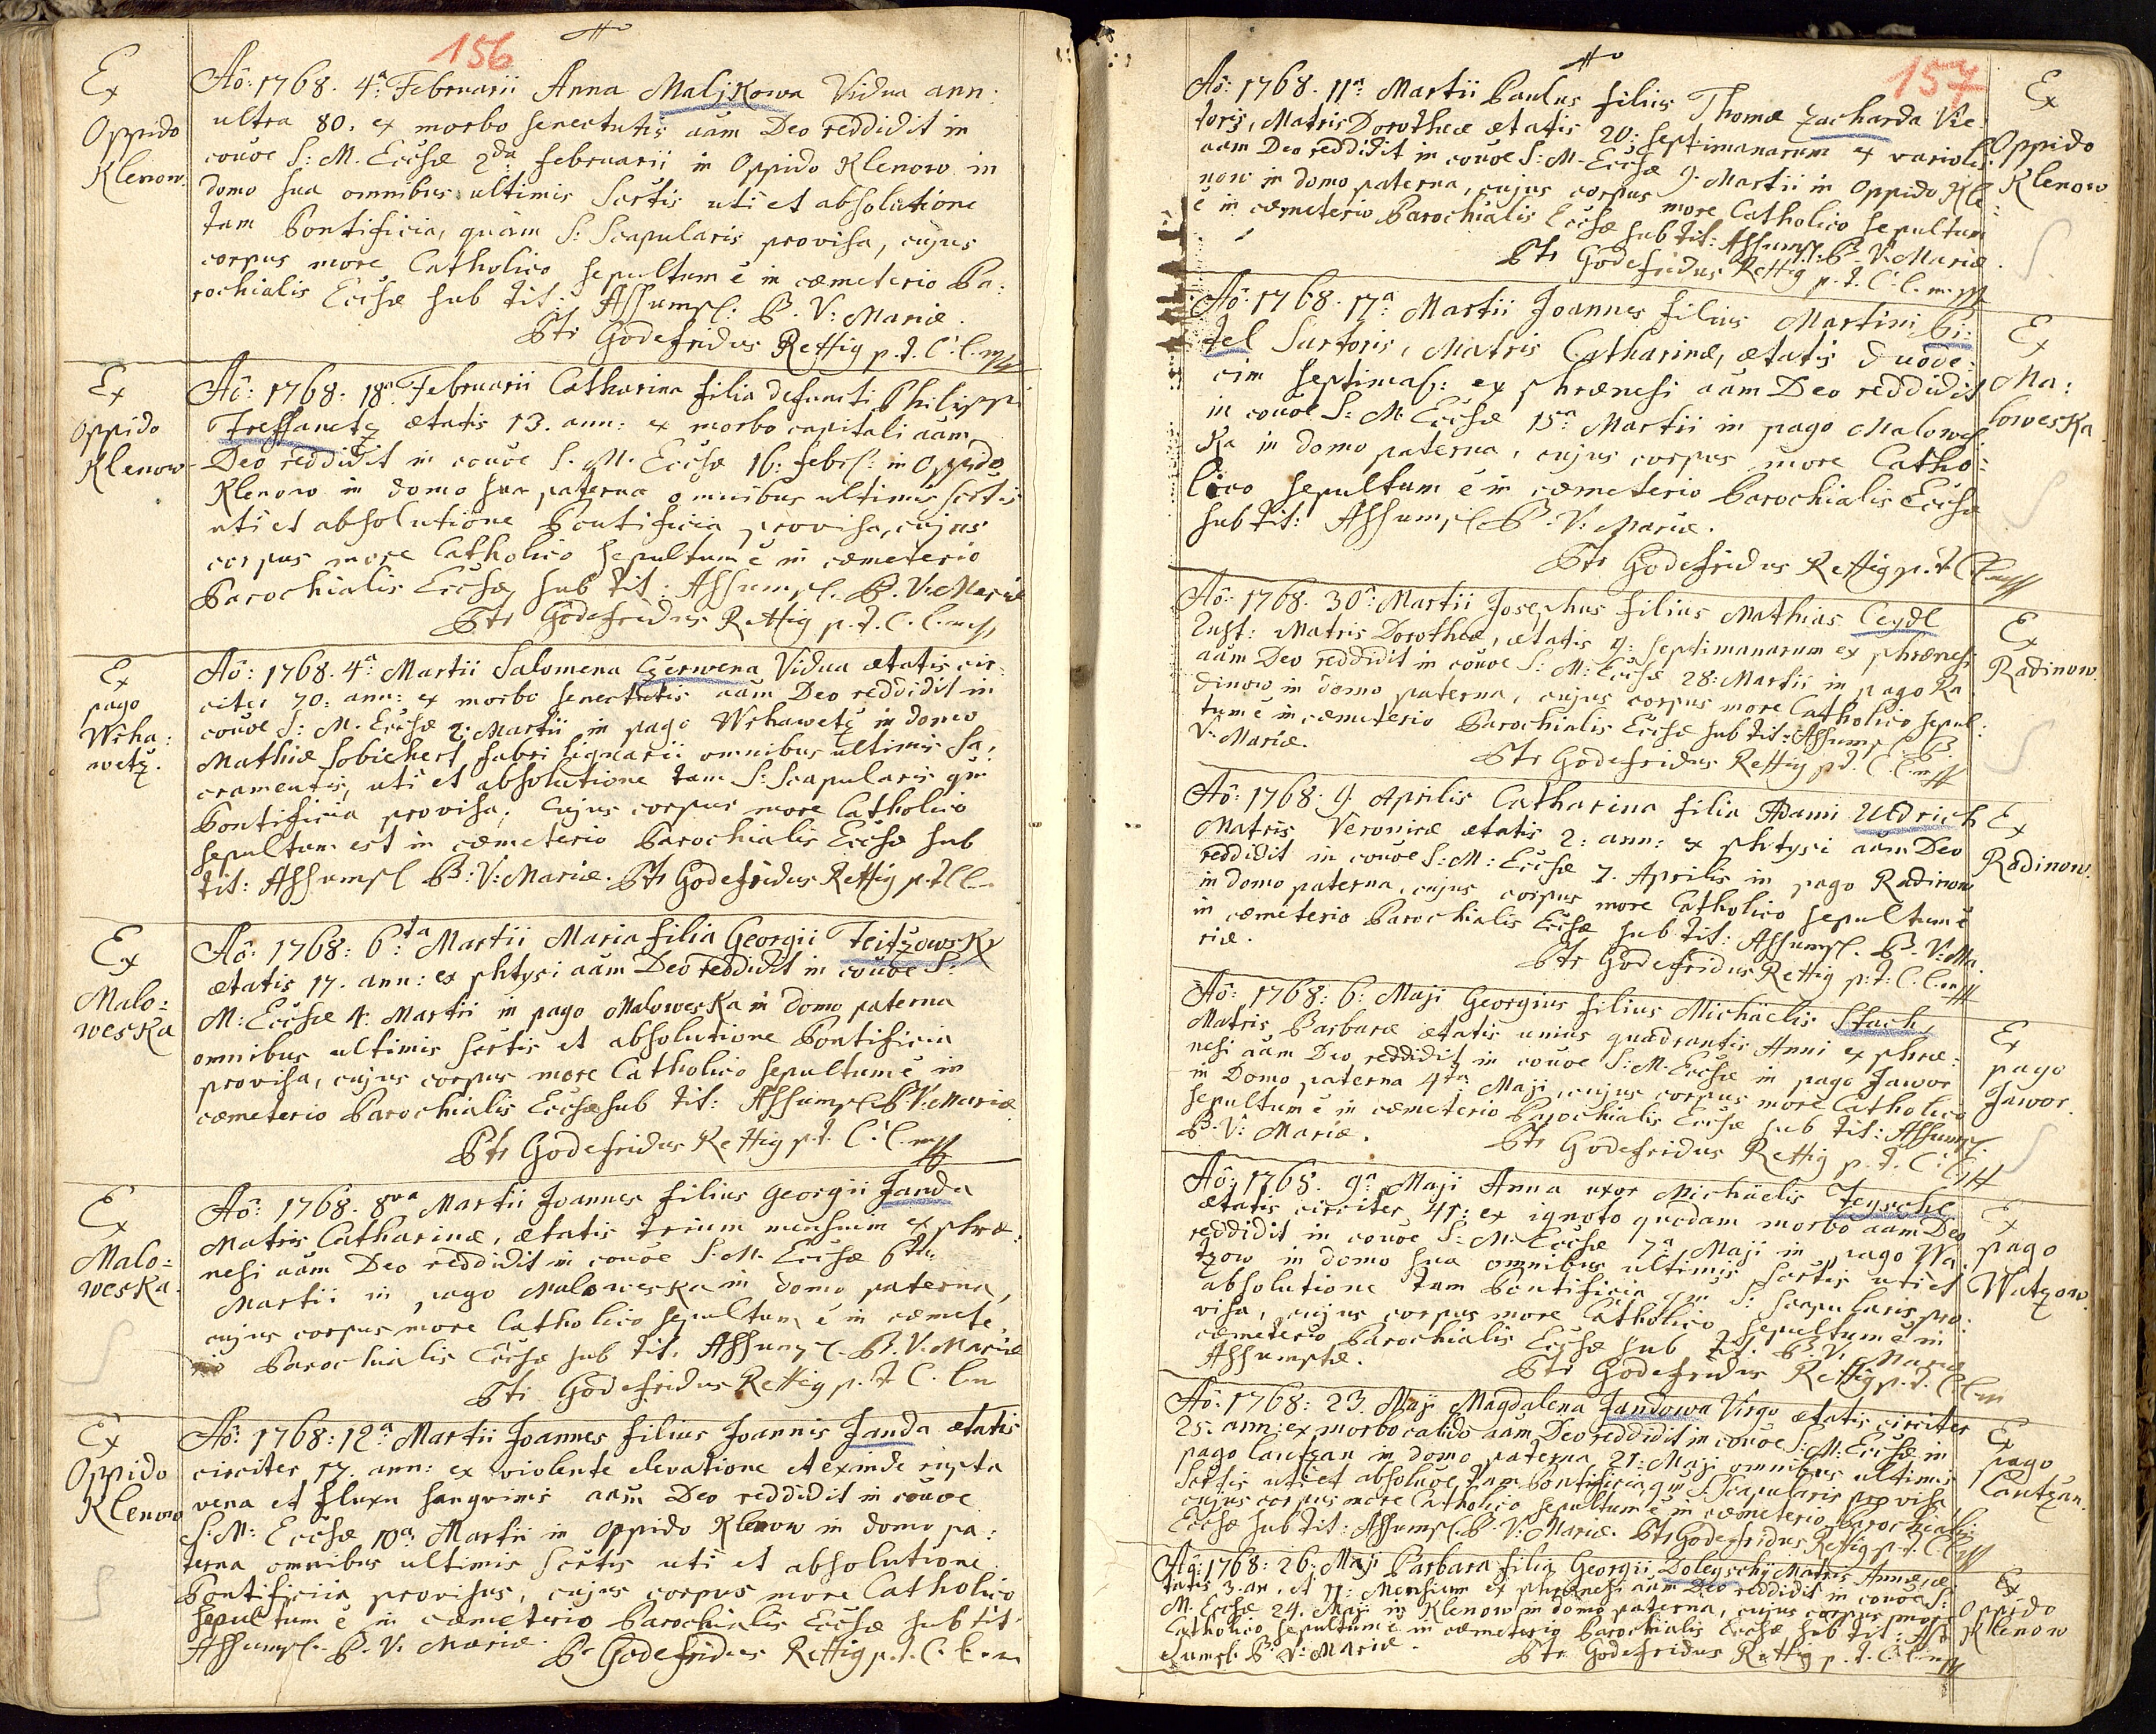 156
Ex
Oppido
Klenow.
Aô: 1768. 4ª: Februarii Anna Maljkowa Vidua ann:
ultra 80. ex morbo senectutis aâm Deo reddidit in
couoe S: M. Ecclsæ 2da februarii in Oppido Klenow in
domo sua omnibus ultimis Scrtis uti et absolutione
tam Pontificia, quàm S: Scapularis provisa, cujus
corpus more Catholico sepultum ê in cæmeterio Pa:
rochialis Ecclsæ sub tit: Assumpt: B. V: Mariæ.
Ptr Godefridus Rettig p. t. C. C. mp
Ex
Oppido
Klenow
Aô: 1768. 18ª Februarii Catharina filia defuncti Philippi
ætatis 13. ann: ex morbo capitali aâm
Deo reddidit in couoe S. M. Ecclsæ 16: febr: in Oppido
Klenow in domo sua paterna omnibus ultimis scrtis
uti et absolutione Pontificia provisa, cujus
corpus more Catholico sepultum ê in cæmeterio
Parochialis Ecclsæ sub tit: Assumpt. B. V. Mariæ
Ptr Godefridus Rettig p. t. C. C. mp
Ex
pago
Wrha:
wetz.
Aô: 1768. 4ª Martii Salomena Czerwena Vidua ætatis cir:
citer 70: ann: ex morbo senectutis aâm Deo reddidit in
couoe S: M. Ecclsæ 2: Martii in pago Wrhawetz in domo
Mathiæ Sobiehert fabri lignarii omnibus ultimis Sa:
cramentis, uti et absolutione tam S: Scapularis qm
Pontificia provisa, cujus corpus more Catholico
sepultum est in cæmeterio Parochialis Ecclsæ sub
tit: Assumpt B: V: Mariæ. Ptr Godefridus Rettig p. t. C. C.
Ex
Malo=
weska
Aô: 1768: 6:ta Martii Maria filia Georgii Teitzowsky
ætatis 17. ann: ex phtysi aâm Deo reddidit in couoe S:
M: Ecclsæ 4: Martii in pago Maloweska in domo paterna
omnibus ultimis scrtis et absolutione Pontificia
provisa, cujus corpus more Catholico sepultum ê in
cæmeterio Parochialis Ecclsæ sub tit: Assumpt B V: Mariæ
Ptr Godefridus Rettig p. t. C. C. mp
Ex
Malo=
weska.
Aô: 1768. 8va Martii Joannes filius Georgii Janda
Matris Catharinæ, ætatis trium mensium ex phræ:
nesi aâm Deo reddidit in couoe S: M. Ecclsæ 6ta
Martii in pago Maloweska in domo paterna,
cujus corpus more Catholico sepultum ê in cæmete
rio Parochialis Ecclsæ sub tit. Assumpt. B. V. Mariæ
Ptr Godefridus Rettig p. t. C. C. m
Ex
Oppido
Klenow
Aô: 1768: 12ª Martii Joannes filius Joannis Janda ætatis
circiter 17. ann: ex violente elevatione et exinde rupta
vena et fluxu sanguinis aâm Deo reddidit in couoe
S. M: Ecclsæ 10ª Martii in Oppido Klenow in domo pa:
terna omnibus ultimis Scrtis uti et absolutione
Pontificia provisus, cujus corpus more Catholico
sepultum ê in cæmeterio Parochialis Ecclsæ sub tit
Assumpt. B. V: Mariæ. Pr Godefridus Rettig p. t. C. C. m
157
Aô: 1768. 11ª: Martii Paulus filius Thomæ Zacharda Vie:
toris, Matris Dorotheæ ætatis 20: septimanarum ex variolis
aâm Deo reddidit in couoe S: M. Ecclsæ 9. Martii in Oppido Kle:
now in domo paterna, cujus corpus more Catholico sepultum
ê in cæmeterio Parochialis Ecclsæ sub tit: Assumpt: B. V. Mariæ.
Ptr Godefridus Rettig p. t. C. C. m. p
Ex
Oppido
Klenow
Aô: 1768. 17ª: Martii Joannes filius Martini Bi:
tel Sartoris, Matris Catharinæ, ætatis duode:
cim septima: ex phrænesi aâm Deo reddidit
in couoe S: M. Ecclsæ 15ª Martii in pago Malowes
ka in domo paterna, cujus corpus more Catho=
lico sepultum ê in cæmeterio Parochialis Ecclsæ
sub tit: Assumpt B. V: Mariæ.
Ptr Godefridus Rettig p. t. C. C. mp
Ex
Ma:
loweska
Aô: 1768. 30ª: Martii Josephus filius Mathias Ceydl
Matris Dorotheæ, ætatis 9: septimanarum ex phrænesi
aâm Deo reddidit in couoe S: M: Ecclsæ 28: Martii in pago Ra
dinow in domo paterna, cujus corpus more Catholico sepul:
tum ê in cæmeterio Parochialis Ecclsæ sub tit: Assumpt B.
V. Mariæ.
Ptr Godefridus Rettig p. t. C. C. mp
Ex
Radinow.
Aô: 1768. 9. Aprilis Catharina filia Adami Uldrich
Matris Veronicæ ætatis 2: ann: ex phtysi aâm Deo
reddidit in couoe S: M: Ecclsæ 7. Aprilis in pago Radinow
in domo paterna, cujus corpus more Catholico sepultum ê
in cæmeterio Parochialis Ecclsæ sub tit: Assumpt. B. V: Ma.
riæ.
Ptr Godefridus Rettig p: t: C. C. mp
Ex
Radinow.
Aô: 1768: 6: Maji Georgius filius Michaelis Stach
Matris Barbaræ ætatis unius quadrantis Anni ex phræ:
nesi aâm Deo reddidit in couoe S: M. Ecclsæ in pago Jawor
in Domo paterna 4ta Maji, cujus corpus more Catholico
sepultum ê in cæmeterio Parochialis Ecclsæ sub tit: Assumpt.
B. V: Mariæ.
Ptr Godefridus Rettig p. t. C. C.
Ex
pago
Jawor.
Aô: 1768. 9ª Maji Anna uxor Michaelis
ætatis circiter 45: ex ignoto quodam morbo aâm Deo
reddidit in couoe S: M. Ecclsæ 7ª Maji in pago Wa:
tzow in domo sua omnibus ultimis Scrtis uti et
absolutione tam Pontificia qm S: Scapularis pro:
visa, cujus corpus more Catholico sepultum ê in
cæmeterio Parochialis Ecclsæ sub tit. B. V. Mariæ
Assumptæ.
Ptr Godefridus Rettig p. t. C. C. m
Ex
pago
Watzow.
Aô: 1768: 23. Maji Magdalena Jandowa Virgo ætatis circiter
25. ann: ex morbo calido aâm Deo reddidit in couoe S: M: Ecclsæ in
pago Lautzan in domo paterna 21: Maji omnibus ultimis
Scrtis uti et absoluoe tam Pontificia qm S: Scapularis provisa
cujus corpus more Catholico sepultum ê in cæmeterio Parochialis
Ecclsæ sub tit: Assumpt. B. V: Mariæ. Ptr Godefridus Rettig p. t. C. C. mp
Ex
pago
Lautzan.
Aô: 1768: 26. Maji Barbara filia Georgii Doleyschy Matris Annæ, æ
tatis 3. an. et 11: Mensium ex phrænesi aâm Deo reddidit in couoe S:
M. Ecclsæ 24. Maji in Klenow in domo paterna, cujus corpus more
Catholico sepultum ê in cæmeterio Parochialis Ecclsæ sub tit: As
sumpt. B. V: Mariæ.
Ptr Godefridus Rettig p. t. C. C. mp
Ex
Oppido
Klenow